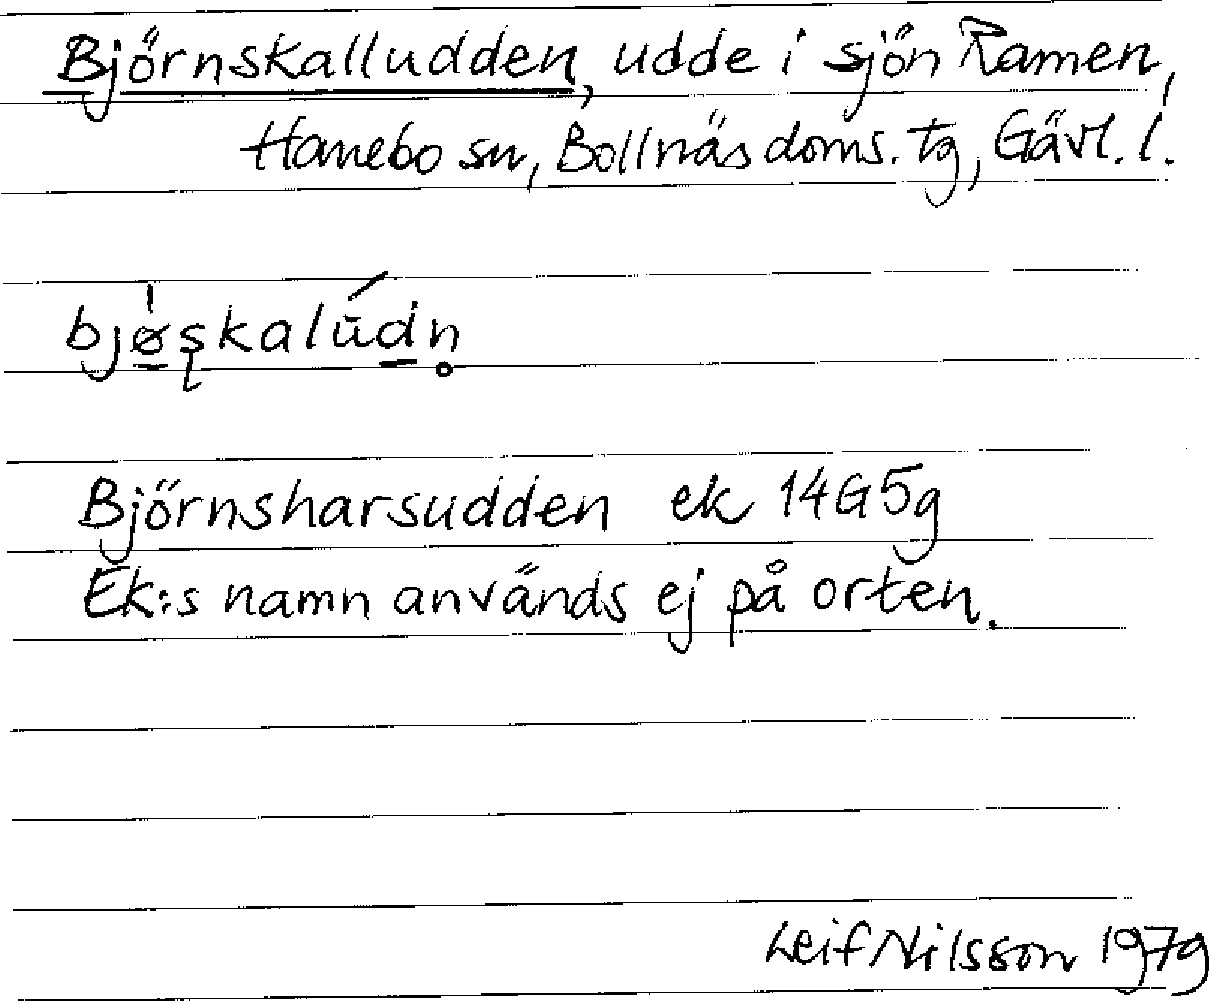 Björnskalludden, udde i sjön Ramen,
Hanebo sn, Bollnäs doms. tg, Gävl. l.
bjø̱ʂkalūḏn̥
Björnsharsudden ek 14G5g
Ek:s namn används ej på orten.
Leif Nilsson 1979